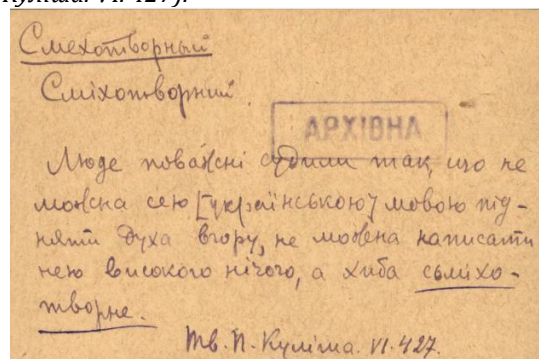 Куліша. VI. 427).
Смехотворный
Сміхотворний
АРХІВНА
Люде поважні судили так, що не
можна сею [українською] мовою під-
няти духа вгору, не можна написати
нею високого нічого, а хиба сьміхо-
творне.
Тв. П. Куліша. VI. 427.